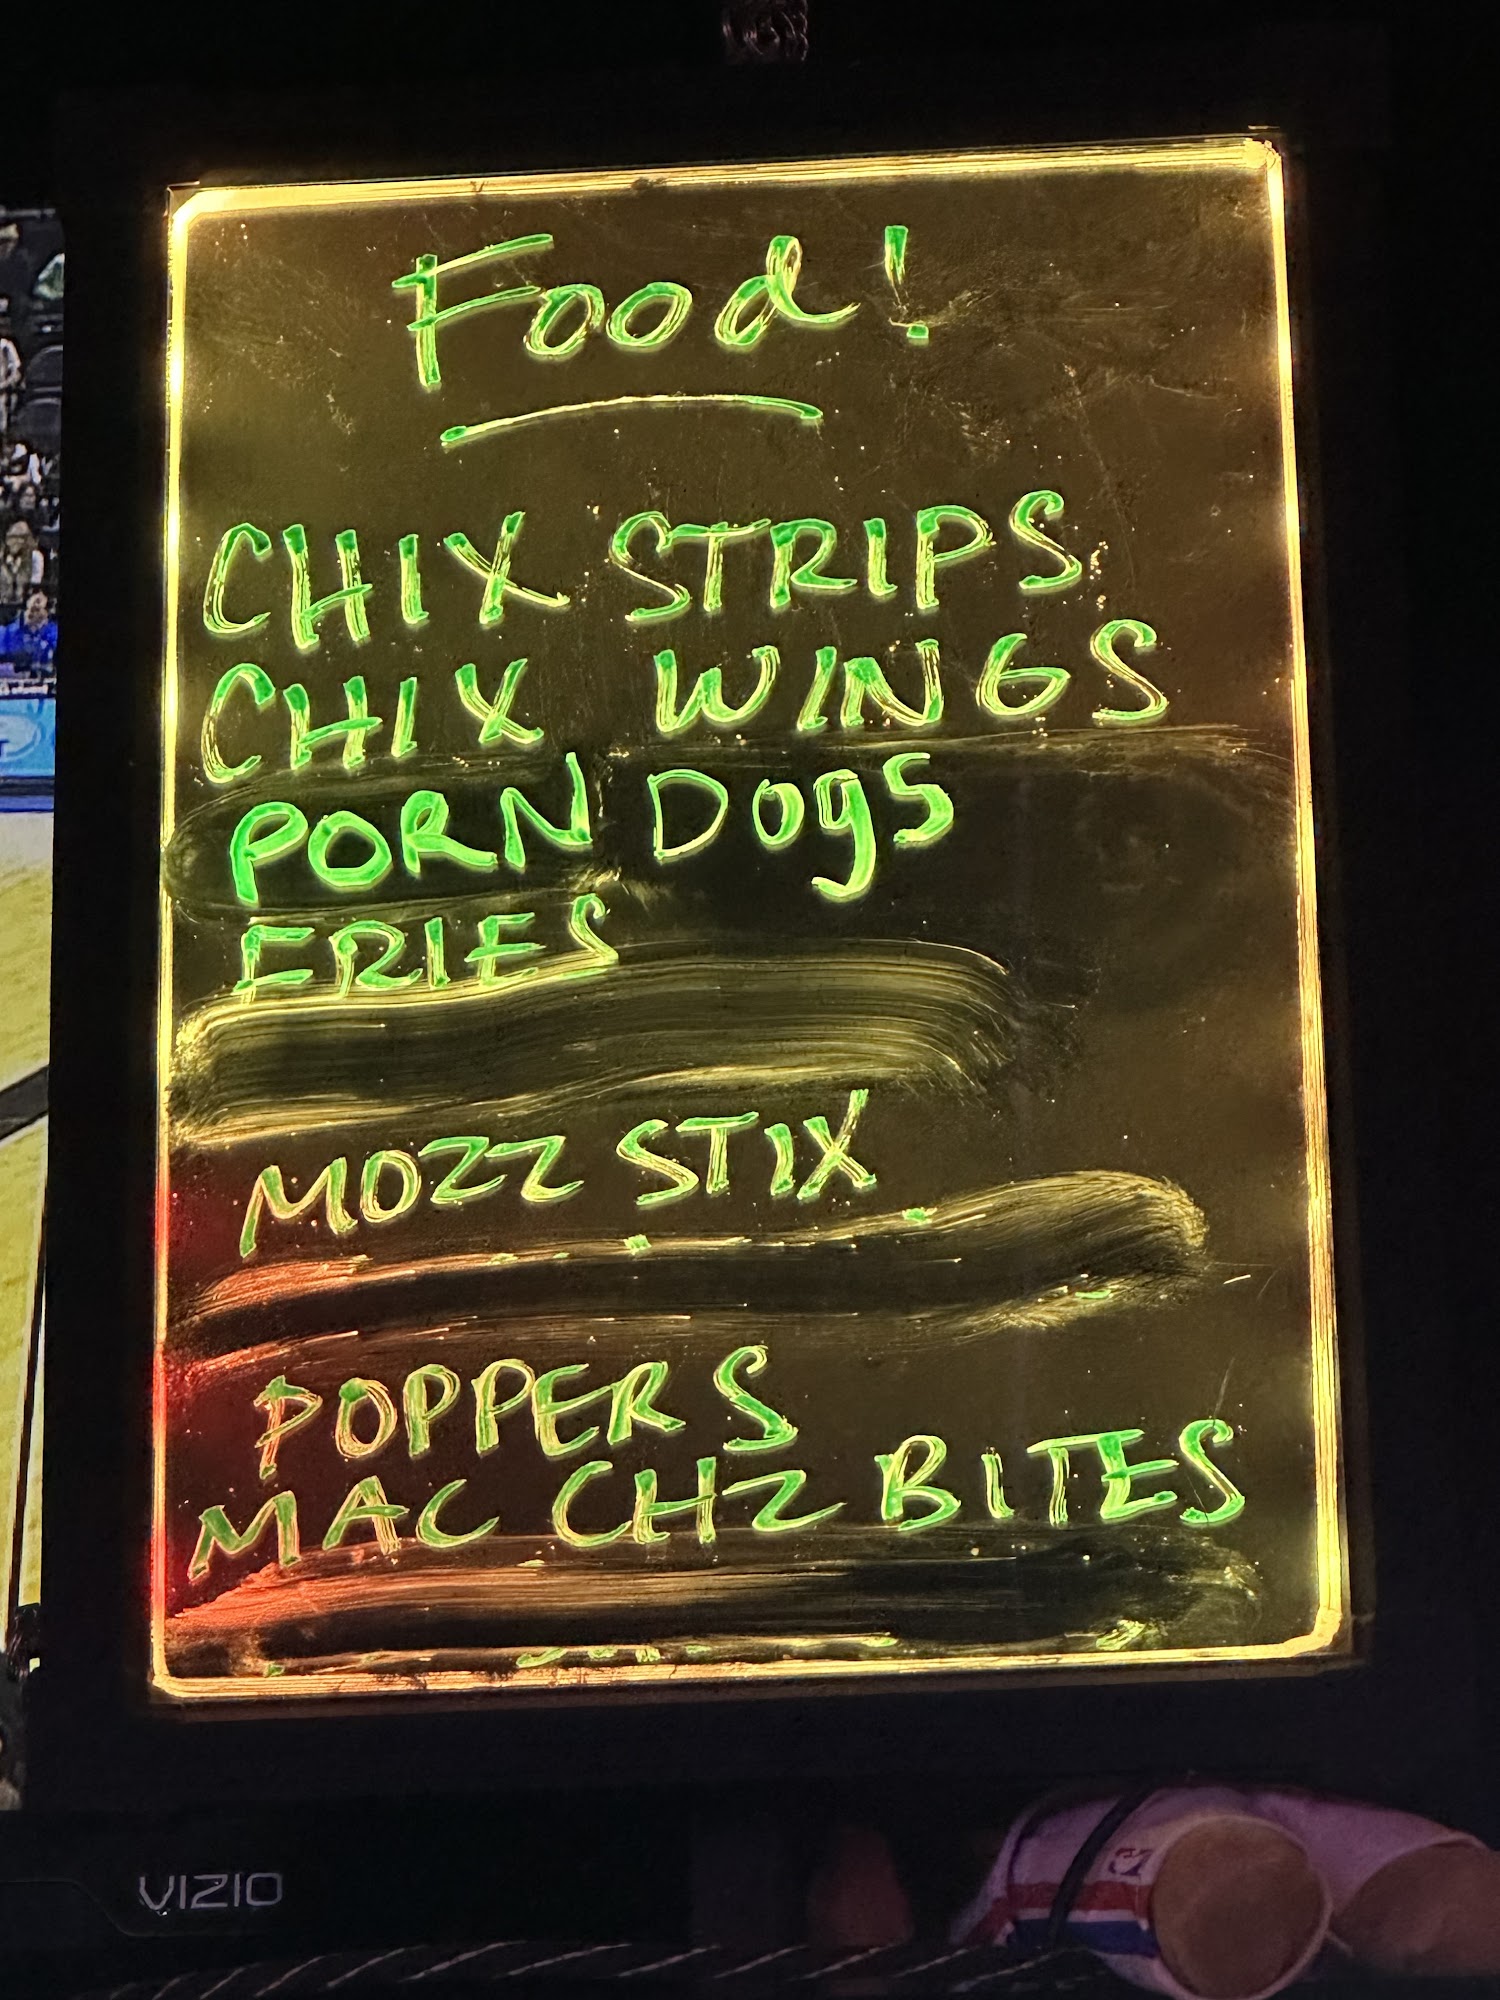 Food!
CHIX STRIPS
CHIX WINGS
PORN Dogs
FRIES
MOZZ STIX
POPPERS
MAC CHZ BITES
VIZIO